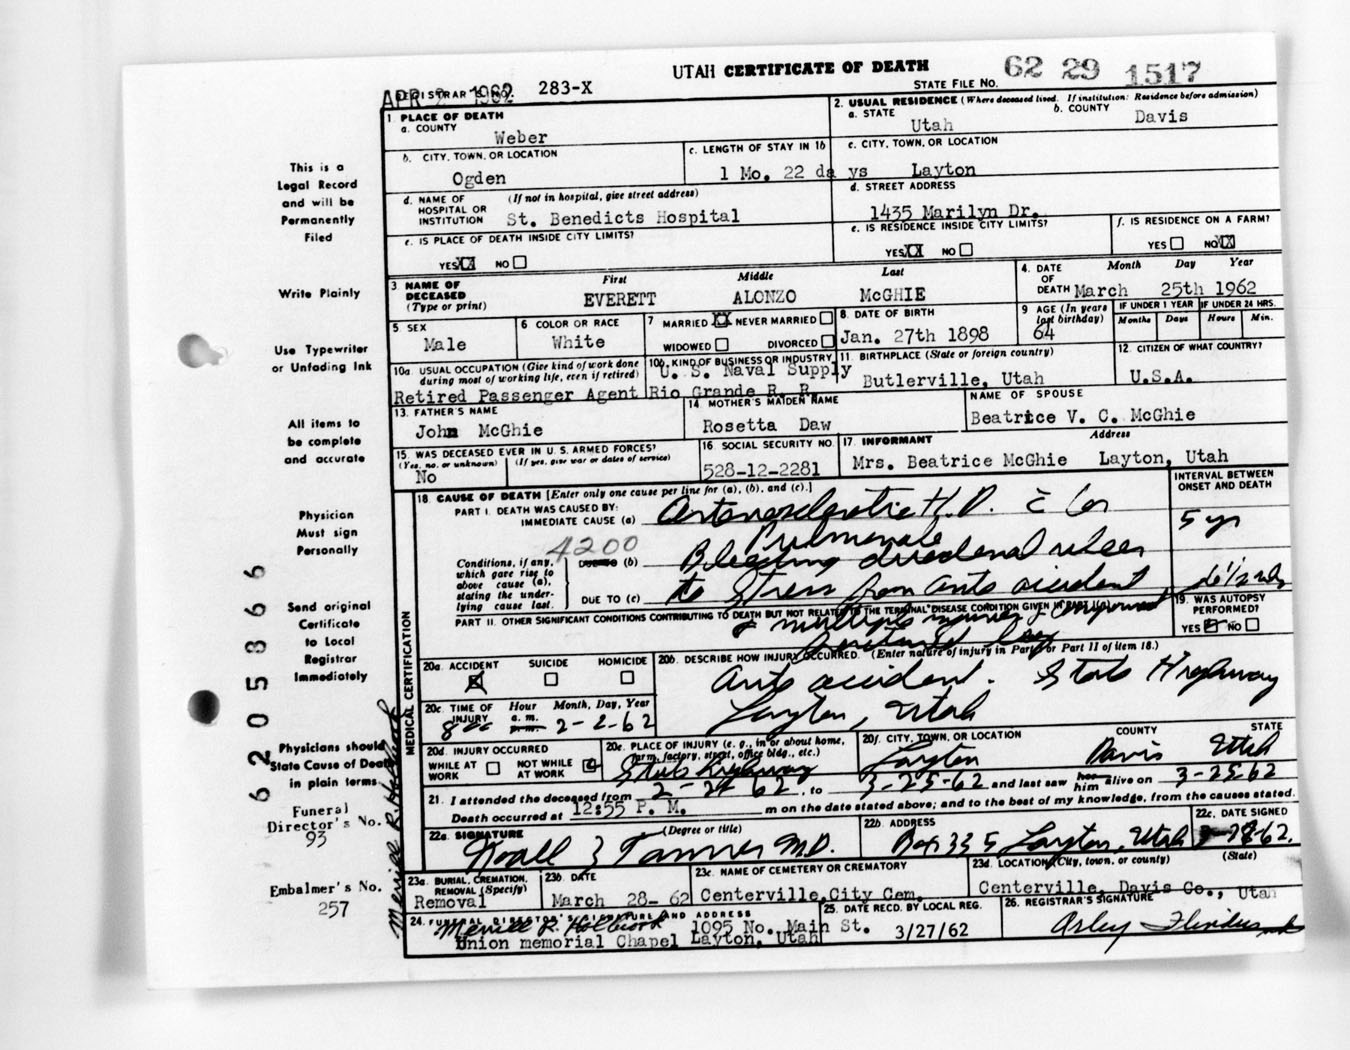 UTAH CERTIFICATE OF DEATH
STATE FILE NO. 62 29 1517
APR 2 1962 283-X
1. PLACE OF DEATH
a. COUNTY
Weber
2. USUAL RESIDENCE (Where deceased lived. If institution: Residence before admission)
a. STATE
Utah
b. COUNTY
Davis
b. CITY, TOWN, OR LOCATION
Ogden
c. LENGTH OF STAY IN 1b
1 Mo. 22 days
c. CITY, TOWN, OR LOCATION
Layton
d. NAME OF HOSPITAL OR INSTITUTION (If not in hospital, give street address)
St. Benedicts Hospital
d. STREET ADDRESS
1435 Marilyn Dr.
e. IS PLACE OF DEATH INSIDE CITY LIMITS?
YES XX NO
e. IS RESIDENCE INSIDE CITY LIMITS?
YES XX NO
f. IS RESIDENCE ON A FARM?
YES NO XX
3. NAME OF DECEASED (Type or print)
First Middle Last
EVERETT ALONZO McGHIE
4. DATE OF DEATH
Month Day Year
March 25th 1962
5. SEX
Male
6. COLOR OR RACE
White
7. MARRIED XX NEVER MARRIED
WIDOWED DIVORCED
8. DATE OF BIRTH
Jan. 27th 1898
9. AGE (In years last birthday)
64
IF UNDER 1 YEAR
Months Days
IF UNDER 24 HRS.
Hours Min.
10a. USUAL OCCUPATION (Give kind of work done during most of working life, even if retired)
Retired Passenger Agent
10b. KIND OF BUSINESS OR INDUSTRY
U. S. Naval Supply
Rio Grande R. R.
11. BIRTHPLACE (State or foreign country)
Butlerville, Utah
12. CITIZEN OF WHAT COUNTRY?
U.S.A.
13. FATHER'S NAME
John McGhie
14. MOTHER'S MAIDEN NAME
Rosetta Daw
NAME OF SPOUSE
Beatrice V. C. McGhie
15. WAS DECEASED EVER IN U. S. ARMED FORCES?
(Yes, no, or unknown) (If yes, give war or dates of service)
No
16. SOCIAL SECURITY NO.
528-12-2281
17. INFORMANT Address
Mrs. Beatrice McGhie Layton, Utah
18. CAUSE OF DEATH [Enter only one cause per line for (a), (b), and (c).]
INTERVAL BETWEEN ONSET AND DEATH
PART I. DEATH WAS CAUSED BY:
IMMEDIATE CAUSE (a) Arteriosclerotic H.D. c Cor
Pulmonale
5 yr
4200
Conditions, if any, which gave rise to above cause (a), stating the underlying cause last.
DUE TO (b) Bleeding duodenal ulcer
DUE TO (c) to stress from auto accident
PART II. OTHER SIGNIFICANT CONDITIONS CONTRIBUTING TO DEATH BUT NOT RELATED TO THE TERMINAL DISEASE CONDITION GIVEN IN PART I(a)
multiple injuries
19. WAS AUTOPSY PERFORMED?
YES NO
20a. ACCIDENT SUICIDE HOMICIDE
X
20b. DESCRIBE HOW INJURY OCCURRED. (Enter nature of injury in Part I or Part II of item 18.)
Auto accident. State Highway
Layton, Utah
20c. TIME OF INJURY
Hour Month, Day, Year
a. m.
p. m.
2-2-62
20d. INJURY OCCURRED
WHILE AT WORK NOT WHILE AT WORK
20e. PLACE OF INJURY (e. g., in or about home, farm, factory, street, office bldg., etc.)
State Highway
20f. CITY, TOWN, OR LOCATION COUNTY STATE
Layton Davis Utah
21. I attended the deceased from to 3-25-62 and last saw her him alive on 3-25-62
Death occurred at 12:55 P. M. m on the date stated above; and to the best of my knowledge, from the causes stated.
22a. SIGNATURE (Degree or title)
Noall Z Tanner M.D.
22b. ADDRESS
Box 335 Layton, Utah
22c. DATE SIGNED
3-28-62.
23a. BURIAL, CREMATION, REMOVAL (Specify)
Removal
23b. DATE
March 28- 62
23c. NAME OF CEMETERY OR CREMATORY
Centerville City Cem.
23d. LOCATION (City, town, or county) (State)
Centerville, Davis Co., Utah
24. FUNERAL DIRECTOR'S SIGNATURE AND ADDRESS
Merrill R. Holbrook 1095 No. Main St.
Union memorial Chapel Layton, Utah
25. DATE RECD. BY LOCAL REG.
3/27/62
26. REGISTRAR'S SIGNATURE
MEDICAL CERTIFICATION
This is a
Legal Record
and will be
Permanently
Filed
Write Plainly
Use Typewriter
or Unfading Ink
All items to
be complete
and accurate
Physician
Must sign
Personally
Send original
Certificate
to Local
Registrar
Immediately
Physicians should
State Cause of Death
in plain terms
Funeral
Director's No.
93
Embalmer's No.
257
62 05866
Merrill R. Holbrook